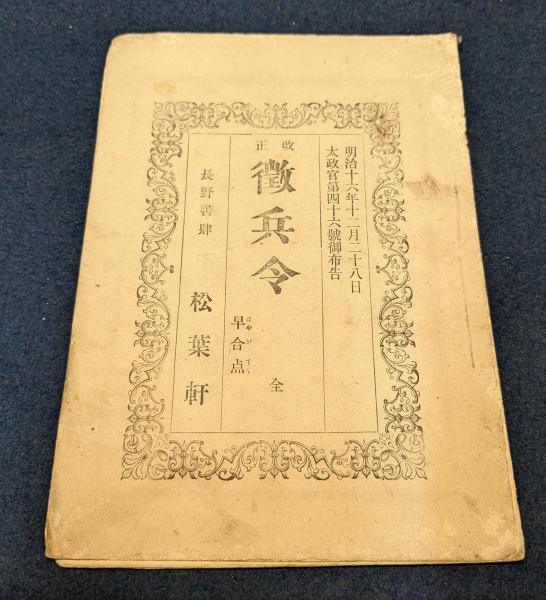 明治十六年十二月二十八日
太政官第四十六號御布告
改正
徴兵令
早合点
はやがてん
全
長野書肆
松葉軒